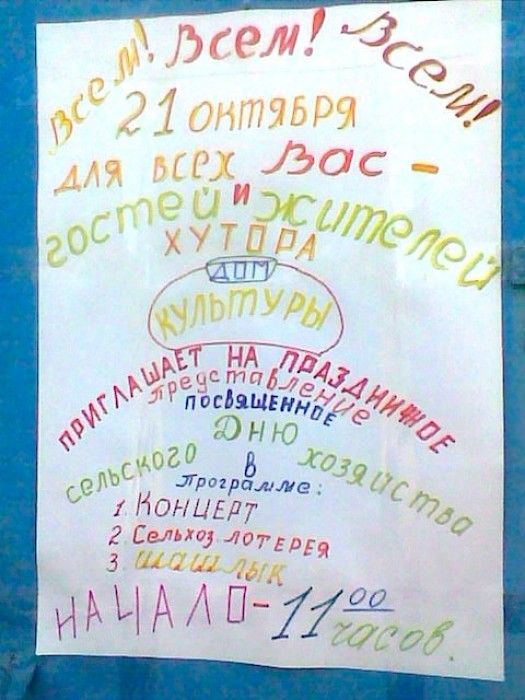 Всем! Всем! Всем!
21 октября
для всех Вас -
гостей и жителей
ХУТОРА
ДОМ
КУЛЬТУРЫ
ПРИГЛАШАЕТ НА ПРАЗДНИЧНОЕ
представление
посвященное
Дню
сельского хозяйства
в
программе:
1. Концерт
2. Сельхоз. лотерея
3. шашлык
НАЧАЛО - 11 00
часов.